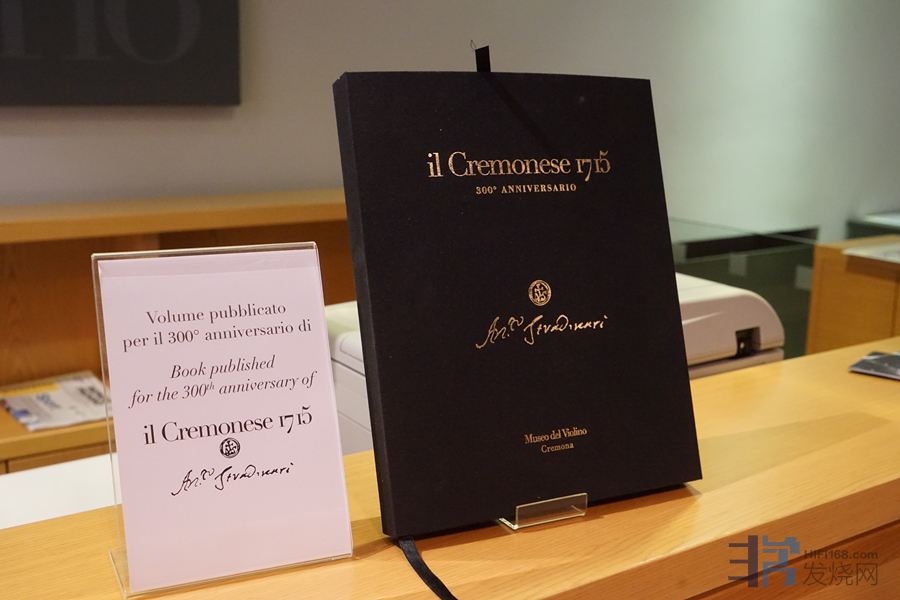 Volume pubblicato
per il 300° anniversario di
Book published
for the 300th anniversary of
il Cremonese 1715
Ant.º Stradivari
il Cremonese 1715
300° ANNIVERSARIO
Ant.º Stradivari
Museo del Violino
Cremona
HiFi168.com
发烧网